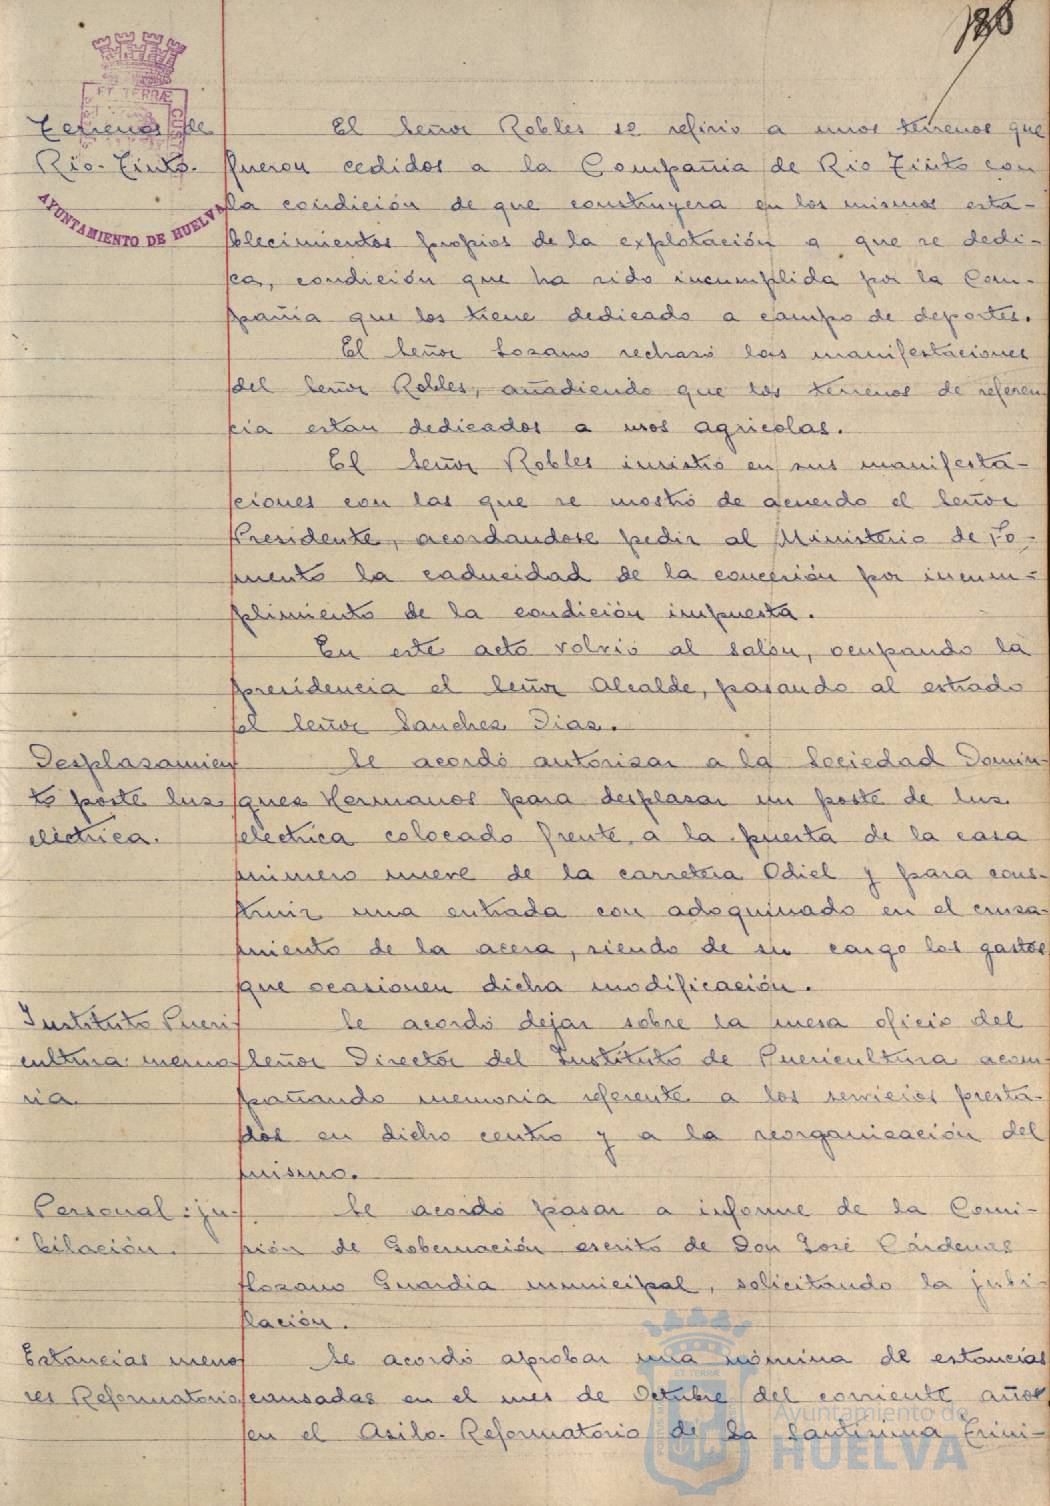 186
ET TERRÆ
CUST
AYUNTAMIENTO DE HUELVA
Terrenos de
Rio-Tinto.
El Señor Robles se refirio a unos terrenos que
fueron cedidos a la Compañia de Rio Tinto con
la condición de que construyera en los mismos esta-
blecimientos propios de la explotación a que se dedi-
ca, condición que ha sido incumplida por la Com-
pañia que los tiene dedicado a campo de deportes.
El Señor Lozano rechazó las manifestaciones
del Señor Robles, añadiendo que los terrenos de referen
cia estan dedicados a usos agricolas.
El Señor Robles insistió en sus manifesta-
ciones con las que se mostró de acuerdo el Señor
Presidente, acordandose pedir al Ministerio de Fo-
mento la caducidad de la concesión por incum-
plimiento de la condición impuesta.
En este acto volvió al salón, ocupando la
presidencia el Señor Alcalde, pasando al estrado
el Señor Sanchez Diaz.
Desplazamien
to poste luz
eléctrica.
Se acordó autorizar a la Sociedad Domin-
guez Hermanos para desplazar un poste de luz
electrica colocado frente a la puerta de la casa
número nueve de la carretera Odiel y para cons-
truir una entrada con adoquinado en el cruza-
miento de la acera, siendo de su cargo los gastos
que ocasionen dicha modificación.
Instituto Pueri
cultura: memo-
ria.
Se acordó dejar sobre la mesa oficio del
Señor Director del Instituto de Puericultura acom-
pañando memoria referente a los servicios presta-
dos en dicho centro y a la reorganización del
mismo.
Personal: ju-
bilación.
Se acordó pasar a informe de la Comi-
sión de Gobernación escrito de Don José Cárdenas
Lozano Guardia municipal, solicitando la jubi-
lación.
Estancias meno
res Reformatorio
Se acordó aprobar una nómina de estancias
causadas en el mes de Octubre del corriente año
en el Asilo-Reformatorio de la Santisima Trini-
Ayuntamiento de
HUELVA